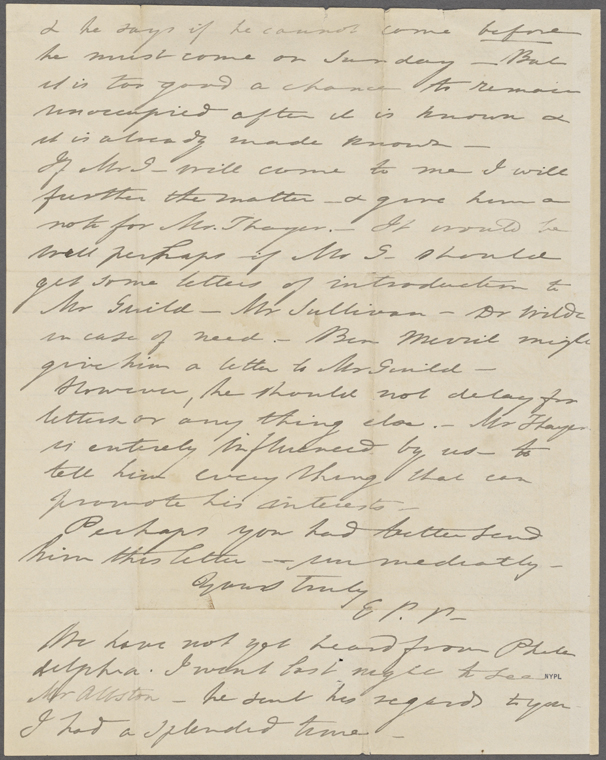 & he says if he cannot come before
he must come on Sunday — But
it is too good a chance to remain
unoccupied after it is known &
it is already made known —
If Mr I — will come to me I will
further the matter — & give him a
note for Mr. Thayer. — It would be
well perhaps if Mr G. should
get some letters of introduction to
Mr Guild — Mr Sullivan — Dr Wilde
in case of need. — Ben might
give him a letter to Mr Guild —
However, he should not delay for
letters or any thing else. — Mr Thayer
is entirely influenced by us — to
tell him every thing that can
promote his interests —
Perhaps you had better send
him this letter — immediately —
Yours truly
E P. P —
We have not yet heard from Phila
delphia. I went last night to see
Mr Allston — he sent his regards to you
I had a splendid time —
NYPL